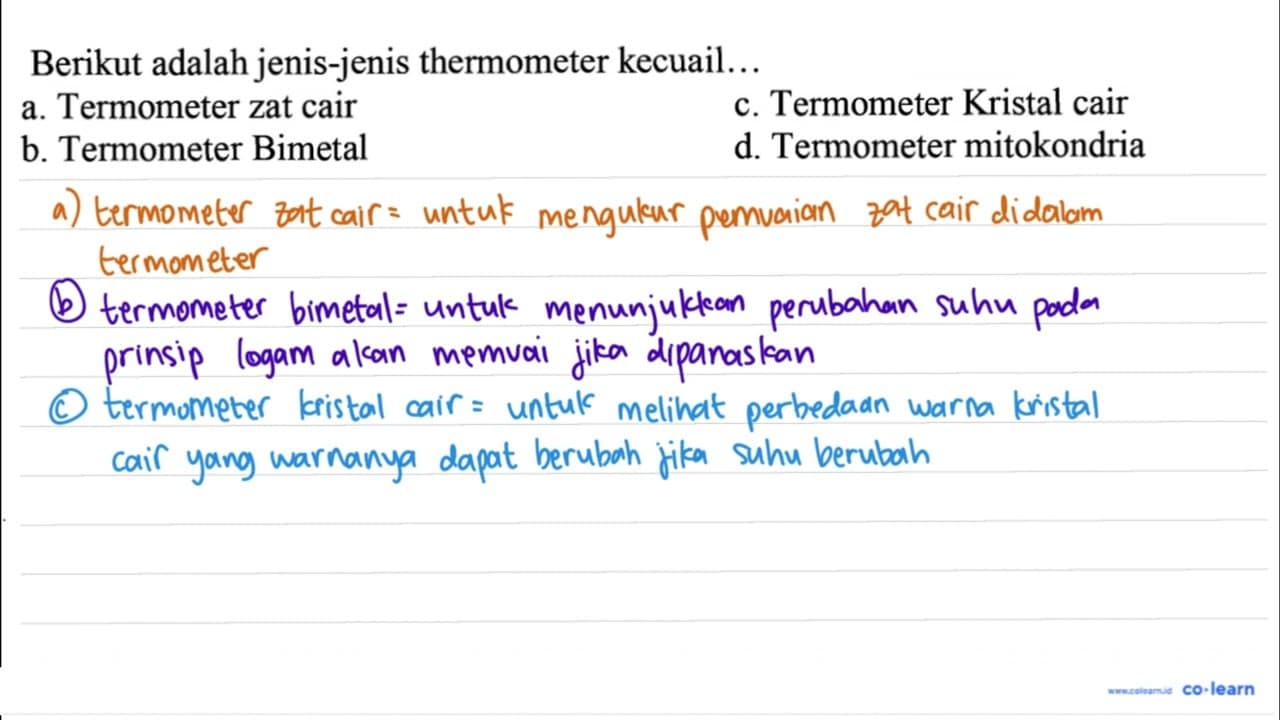 Berikut adalah jenis-jenis thermometer kecuail...
a. Termometer zat cair
c. Termometer Kristal cair
b. Termometer Bimetal
d. Termometer mitokondria
a) termometer zat cair = untuk mengukur pemuaian zat cair didalam
termometer
b termometer bimetal = untuk menunjukkan perubahan suhu pada
prinsip logam akan memuai jika dipanaskan
c termometer kristal cair = untuk melihat perbedaan warna kristal
cair yang warnanya dapat berubah jika suhu berubah
www.colearn.id co·learn